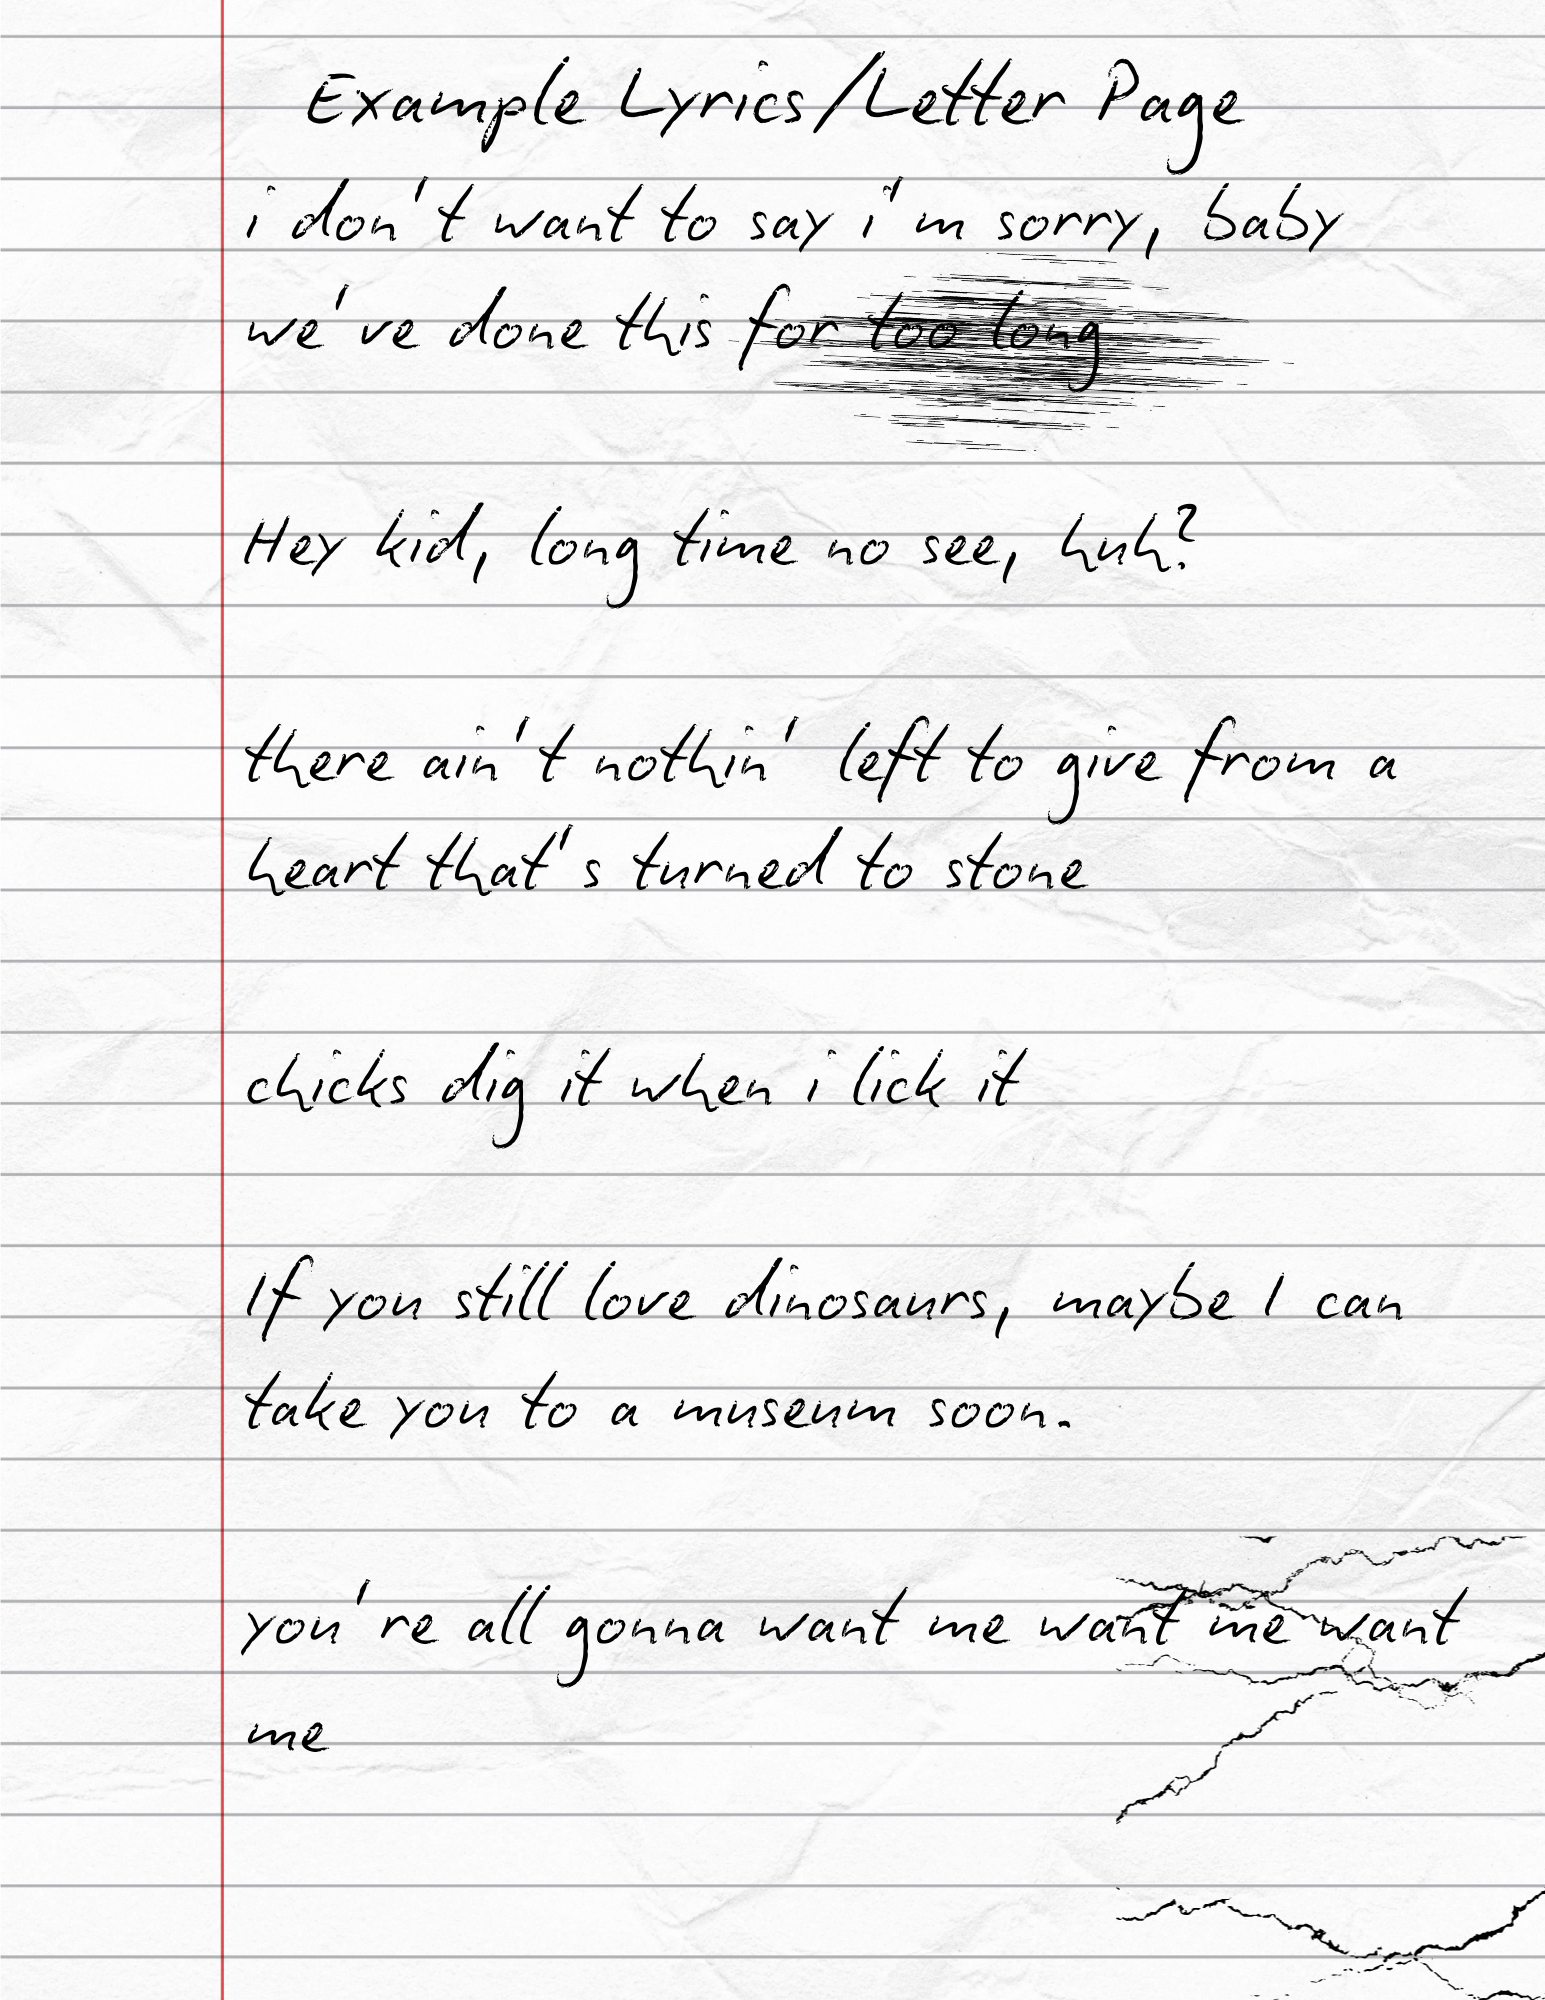 Example Lyrics/Letter Page
i don't want to say i'm sorry, baby
we've done this for too long
Hey kid, long time no see, huh?
there ain't nothin' left to give from a
heart that's turned to stone
chicks dig it when i lick it
If you still love dinosaurs, maybe I can
take you to a museum soon.
you're all gonna want me want me want
me